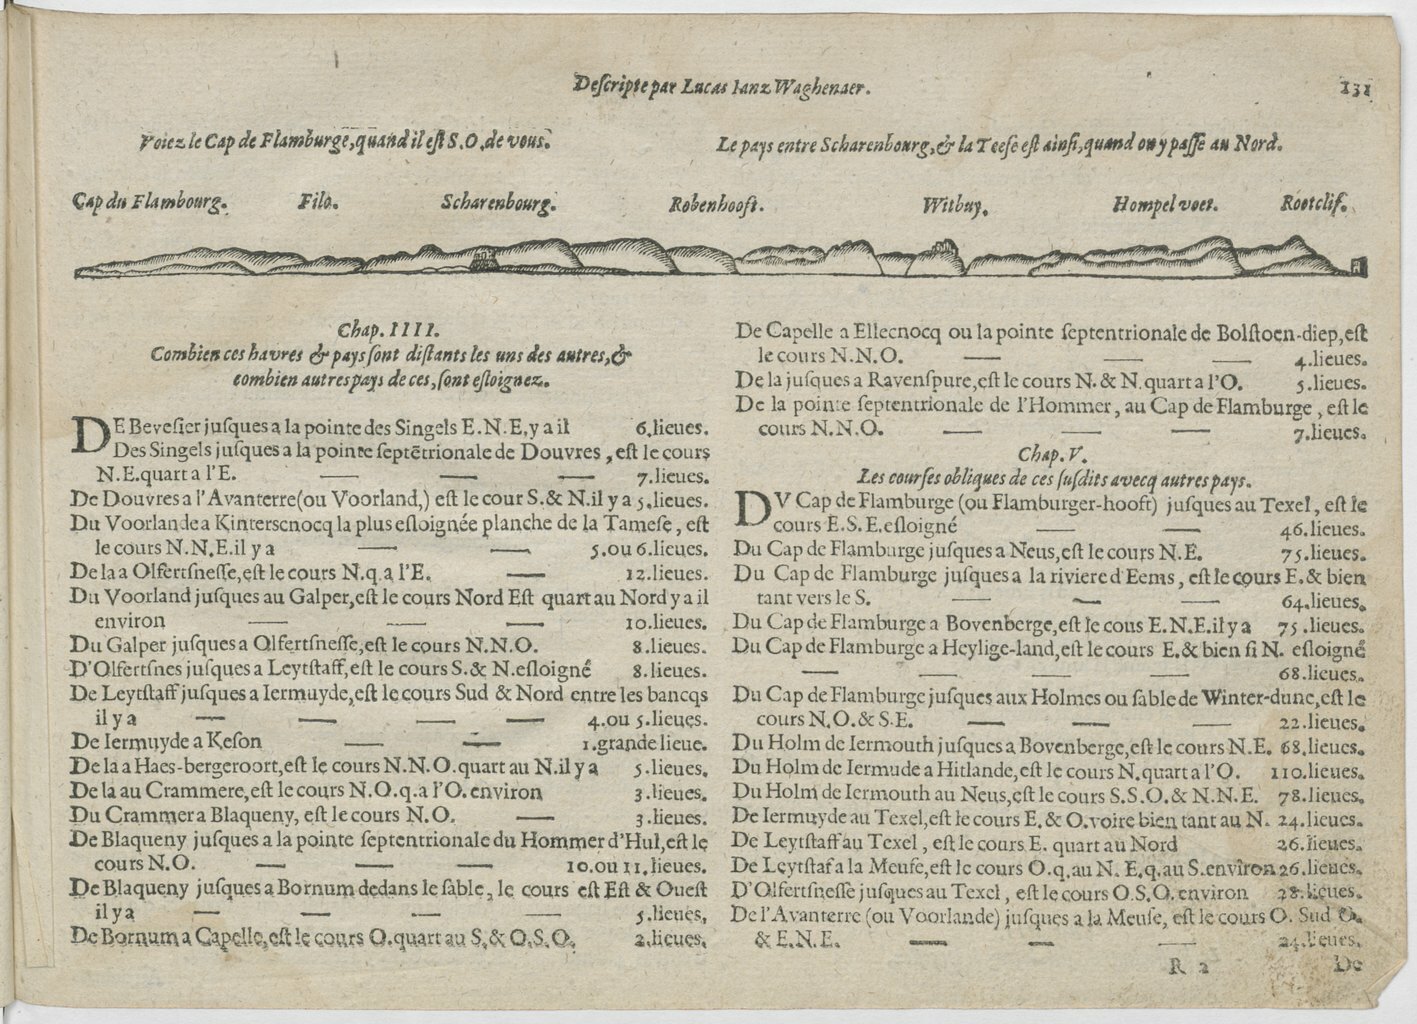 Descripte par Lucas Ianz Waghenaer.
131
Voiez le Cap de Flamburge, quand il eſt S.O. de vous.
Le pays entre Scharenbourg, & la Teeſe eſt ainſi, quand on y paſſe au Nord.
Cap du Flambourg. Filo. Scharenbourg. Robenhooft. Witbuy. Hompel voet. Rootclif.
Chap. IIII.
Combien ces havres & pays ſont diſtants les uns des autres, &
combien autres pays de ces, ſont eſloignez.
DE Beveſier juſques a la pointe des Singels E.N.E, y a il 6. lieues.
Des Singels juſques a la pointe ſeptētrionale de Douvres, eſt le cours
N.E. quart a l'E. — — — 7. lieues.
De Douvres a l'Avanterre (ou Voorland,) eſt le cour S. & N. il y a 5. lieues.
Du Voorlande a Kinterscnocq la plus eſloignée planche de la Tameſe, eſt
le cours N.N.E. il y a — — 5. ou 6. lieues.
De la a Olfertſneſſe, eſt le cours N. q. a l'E. — 12. lieues.
Du Voorland juſques au Galper, eſt le cours Nord Eſt quart au Nord y a il
environ — — — 10. lieues.
Du Galper juſques a Olfertſneſſe, eſt le cours N.N.O. 8. lieues.
D'Olfertſnes juſques a Leytſtaff, eſt le cours S. & N. eſloigné 8. lieues.
De Leytſtaff juſques a Iermuyde, eſt le cours Sud & Nord entre les bancqs
il y a — — — — 4. ou 5. lieues.
De Iermuyde a Keſon — — 1. grande lieue.
De la a Haes-bergeroort, eſt le cours N.N.O. quart au N. il y a 5. lieues.
De la au Crammere, eſt le cours N.O. q. a l'O. environ 3. lieues.
Du Crammer a Blaqueny, eſt le cours N.O. — 3. lieues.
De Blaqueny juſques a la pointe ſeptentrionale du Hommer d'Hul, eſt le
cours N.O. — — — 10. ou 11. lieues.
De Blaqueny juſques a Bornum dedans le ſable, le cours eſt Eſt & Oueſt
il y a — — — — 5. lieues,
De Bornum a Capelle, eſt le cours O. quart au S. & O.S.O. 2. lieues.
De Capelle a Ellecnocq ou la pointe ſeptentrionale de Bolſtoen-diep, eſt
le cours N.N.O. — — — 4. lieues.
De la juſques a Ravenſpure, eſt le cours N. & N. quart a l'O. 5. lieues.
De la pointe ſeptentrionale de l'Hommer, au Cap de Flamburge, eſt le
cours N.N.O. — — — 7. lieues.
Chap. V.
Les courſes obliques de ces ſuſdits avecq autres pays.
DV Cap de Flamburge (ou Flamburger-hooft) juſques au Texel, eſt le
cours E.S.E. eſloigné — — 46. lieues.
Du Cap de Flamburge juſques a Neus, eſt le cours N.E. 75. lieues.
Du Cap de Flamburge juſques a la riviere d'Eems, eſt le cours E. & bien
tant vers le S. — — — 64. lieues.
Du Cap de Flamburge a Bovenberge, eſt le cous E.N.E. il y a 75. lieues.
Du Cap de Flamburge a Heylige-land, eſt le cours E. & bien ſi N. eſloigné
— — — — 68. lieues.
Du Cap de Flamburge juſques aux Holmes ou ſable de Winter-dune, eſt le
cours N.O. & S.E. — — — 22. lieues.
Du Holm de Iermouth juſques a Bovenberge, eſt le cours N.E. 68. lieues.
Du Holm de Iermude a Hitlande, eſt le cours N. quart a l'O. 110. lieues.
Du Holm de Iermouth au Neus, eſt le cours S.S.O. & N.N.E. 78. lieues.
De Iermuyde au Texel, eſt le cours E. & O. voire bien tant au N. 24. lieues.
De Leytſtaff au Texel, eſt le cours E. quart au Nord 26. lieues.
De Leytſtaf a la Meuſe, eſt le cours O. q. au N. E. q. au S. environ 26. lieues.
D'Olfertſneſſe juſques au Texel, eſt le cours O.S.O. environ 28. lieues.
De l'Avanterre (ou Voorlande) juſques a la Meuſe, eſt le cours O. Sud O.
& E.N.E. — — — 24. lieues.
R 2 De